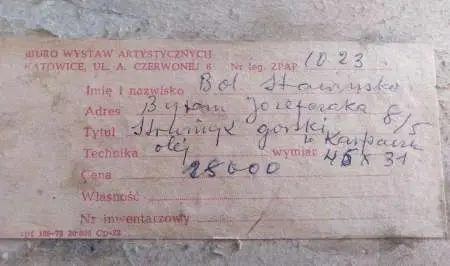 BIURO WYSTAW ARTYSTYCZNYCH
KATOWICE, UL. A. CZERWONEJ 6 Nr leg. ZPAP 10.23
Imię i nazwisko Bol
Adres Bytom 8/5
Tytuł Strumyk górski
"Karpacz
Technika olej wymiar 45 x 31
Cena 25000
Własność
Nr inwentarzowy